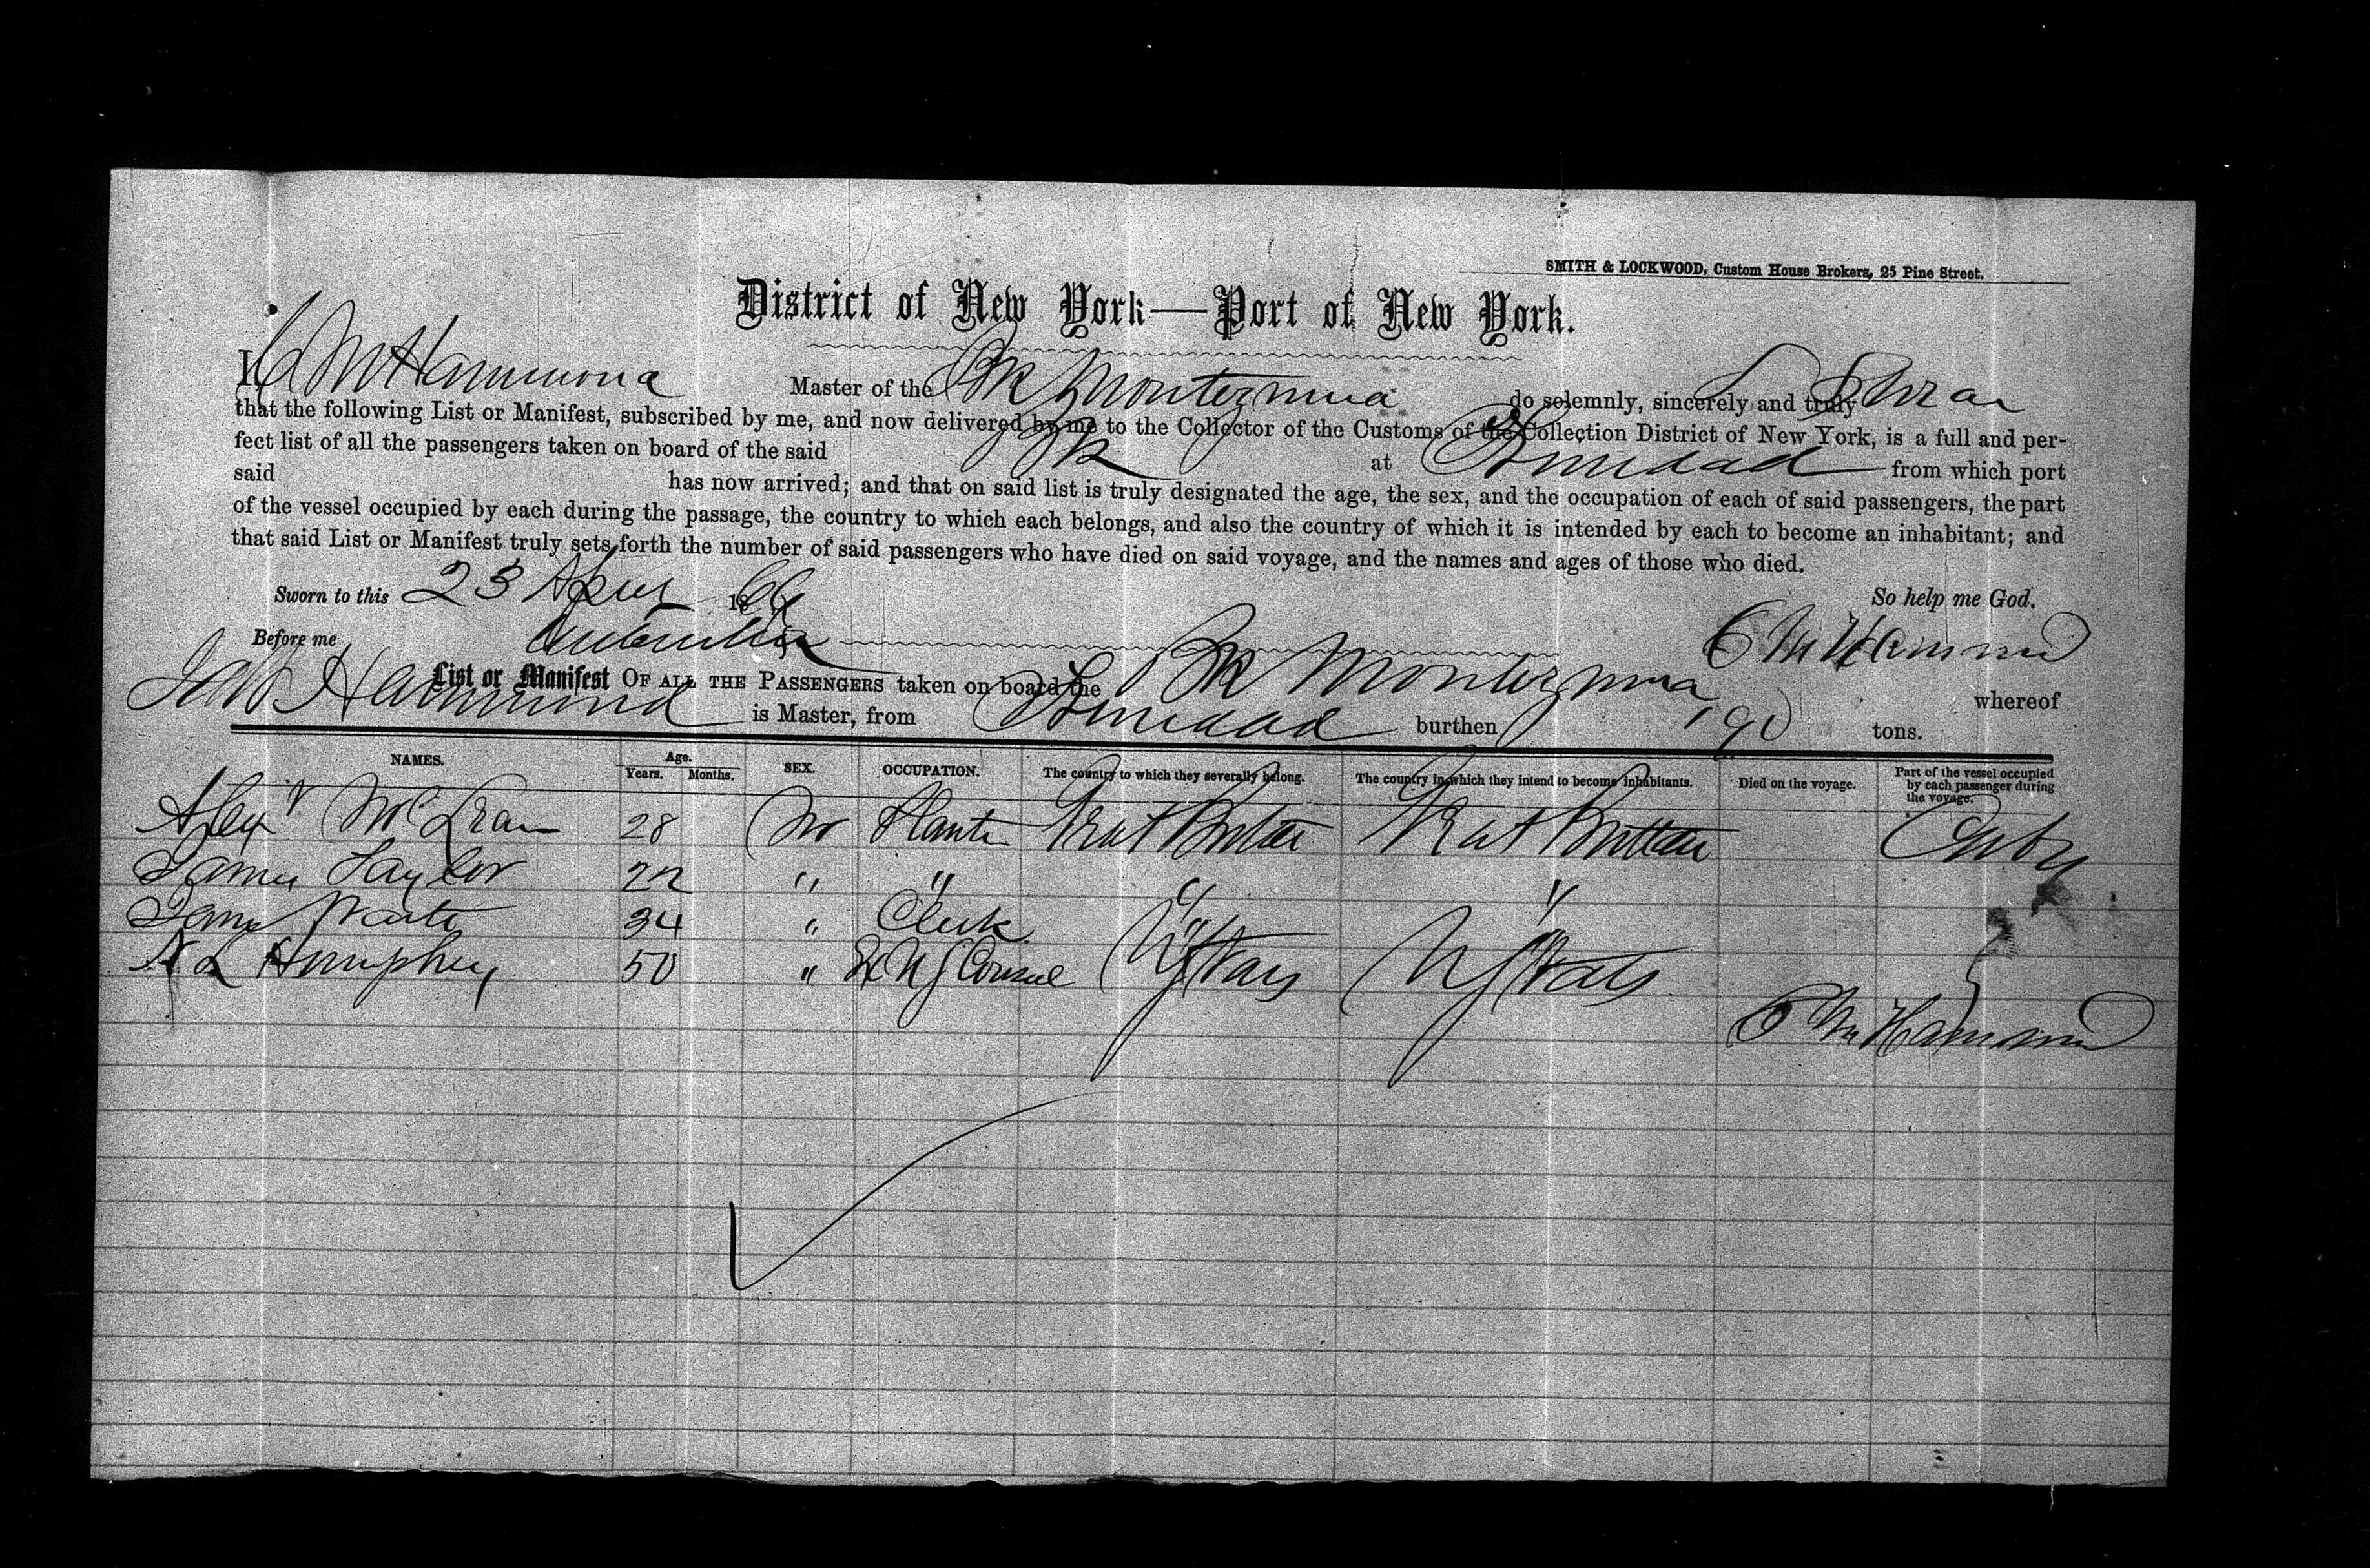 SMITH & LOCKWOOD, Custom House Brokers, 25 Pine Street.
District of New York—Port of New York.
I, C M Hammond Master of the Bk Montezuma do solemnly, sincerely and truly Swear
that the following List or Manifest, subscribed by me, and now delivered by me to the Collector of the Customs of the Collection District of New York, is a full and per-
fect list of all the passengers taken on board of the said Bk at Trinidad from which port
said has now arrived; and that on said list is truly designated the age, the sex, and the occupation of each of said passengers, the part
of the vessel occupied by each during the passage, the country to which each belongs, and also the country of which it is intended by each to become an inhabitant; and
that said List or Manifest truly sets forth the number of said passengers who have died on said voyage, and the names and ages of those who died.
Sworn to this 23 April 1866 So help me God.
Before me C M Hammond
List or Manifest OF ALL THE PASSENGERS taken on board the Bk Montezuma whereof
Hammond is Master, from Trinidad burthen 190 tons.
NAMES. Age. Years. Months. SEX. OCCUPATION. The country to which they severally belong. The country in which they intend to become inhabitants. Died on the voyage. Part of the vessel occupied by each passenger during the voyage.
Alexr McLean 28 M Planter Great Britain Great Britain Cabin
James Taylor 22 " " " "
James 34 " Clerk " "
Humphrey 50 " Ex U S Consul U States U States
C M Hammond